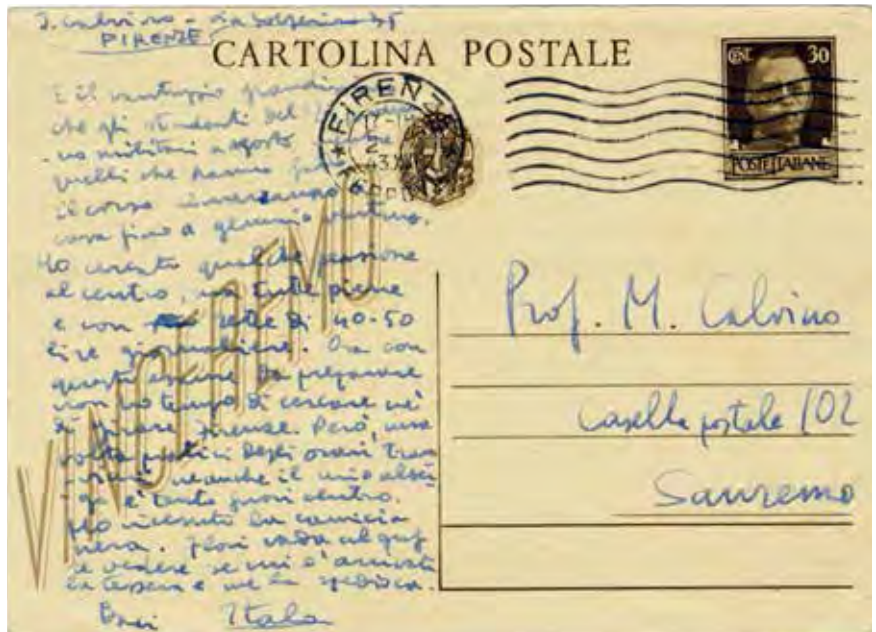 I. Calvino - via Solferino
FIRENZE
CARTOLINA POSTALE
CENT. 30
POSTE ITALIANE
FIRENZE
17-18
VINCEREMO
E il vantaggio grandi
che gli studenti del
no militari agosto mentre
quelli che hanno
il corso
casa fino a gennaio venturo.
Ho cercato qualche pensione
al centro, ma tutte piene
e con rette di 40-50
lire giornaliere. Ora con
questi esami da preparare
non ho tempo di cercare né
di girare Firenze. Però, una
volta pratici degli orari tran
viari neanche il mio allog
gio è tanto fuori centro.
Ho ricevuto la camicia
nera. Flori vada al guf
a vedere se mi è arrivata
la tessera e me la spedisca.
Baci Italo
Prof. M. Calvino
Casella postale 102
Sanremo